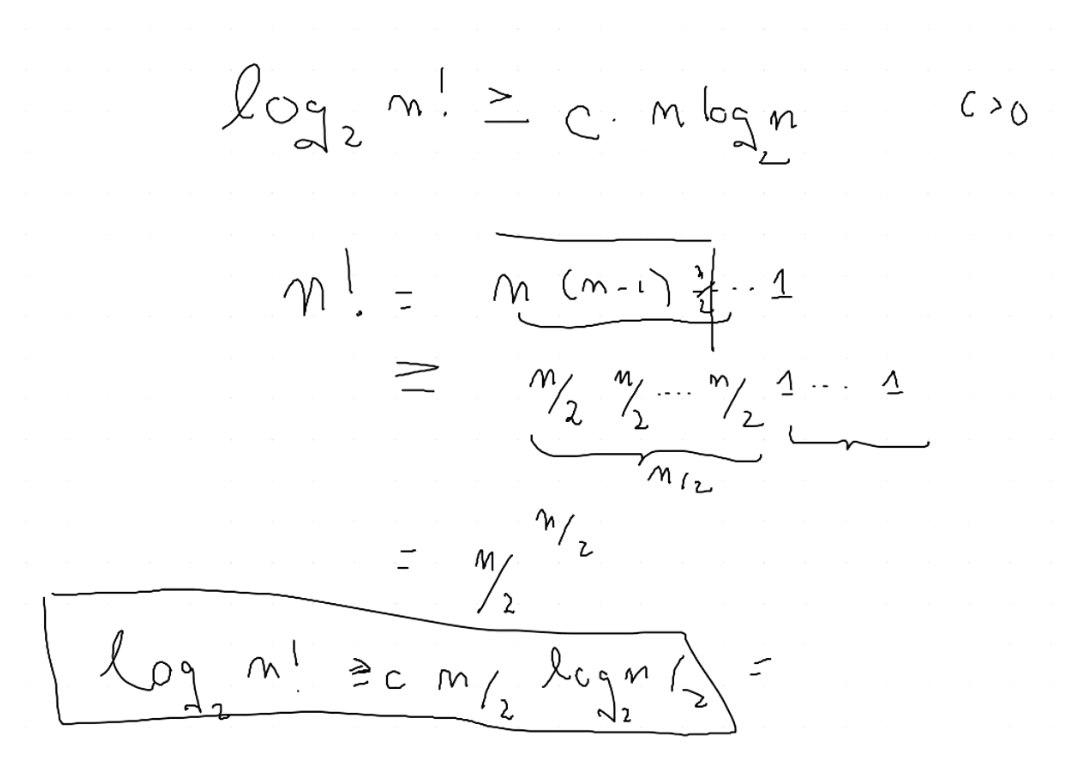 log₂ n! ≥ c · n log₂ n c > 0
n! = n (n-1) n/2 ... 1
≥ n/2 n/2 .... n/2 1 ... 1
n/2
= n/2 ^ n/2
log₂ n! ≥ c n/2 log₂ n/2 =